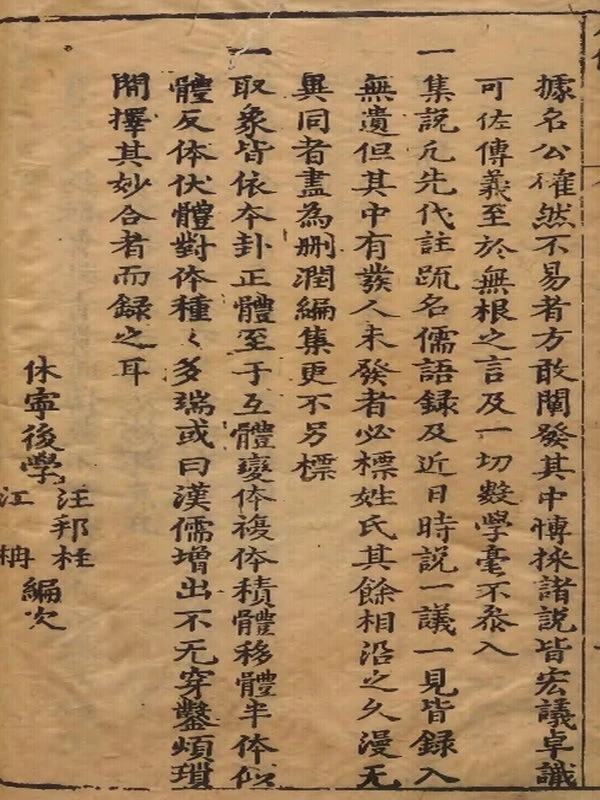 據名公確然不易者方敢闡發其中愽採諸説皆宏議卓識
可佐傳義至於無根之言及一切数學毫不叅入
一集説凢先代註䟽名儒語録及近日時説一議一見皆録入
無遺但其中有發人未發者必標姓氏其餘相沿之久漫无
異同者盡為刪潤編集更不另標
一取象皆依夲卦正體至于互體變体複体積體移體半体似
體反体伏體對体種〻多瑞或曰漢儒增出不无穿鑿煩瑣
間擇其妙合者而録之耳
休寧後學
汪邦柱
江柟
編次